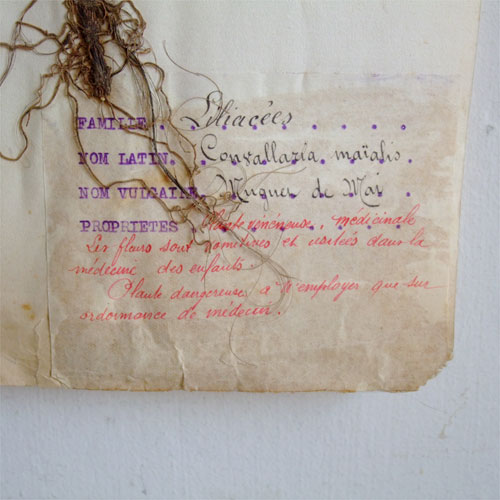 FAMILLE. Liliacées
NOM LATIN. Convallaria maïalis.
NOM VULGAIRE. Muguet de Mai
PROPRIETES. Plante vénéneuse, médicinale
Les fleurs sont vomitives et usitées dans la
médecine des enfants.
Plante dangereuse à n'employer que sur
ordonnance de médecin.